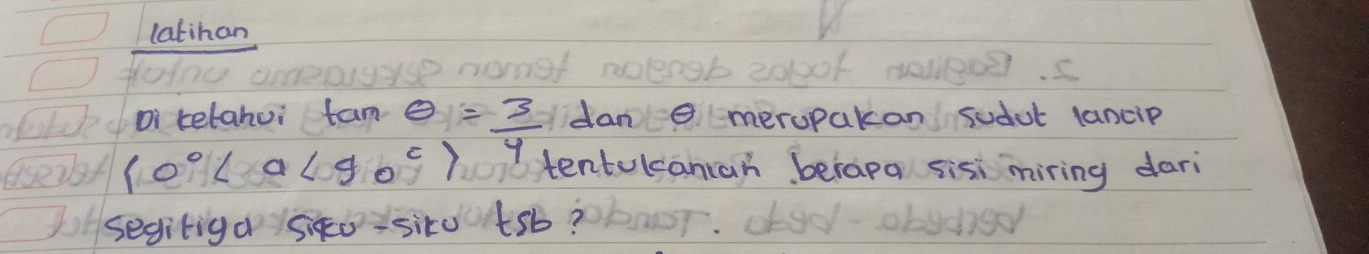 latihan
Diketahui tan θ = 3/4 dan θ merupakan sudut lancip
(0° < a < 90°) tentukanlah berapa sisi miring dari
segitiga siku-siku tsb?